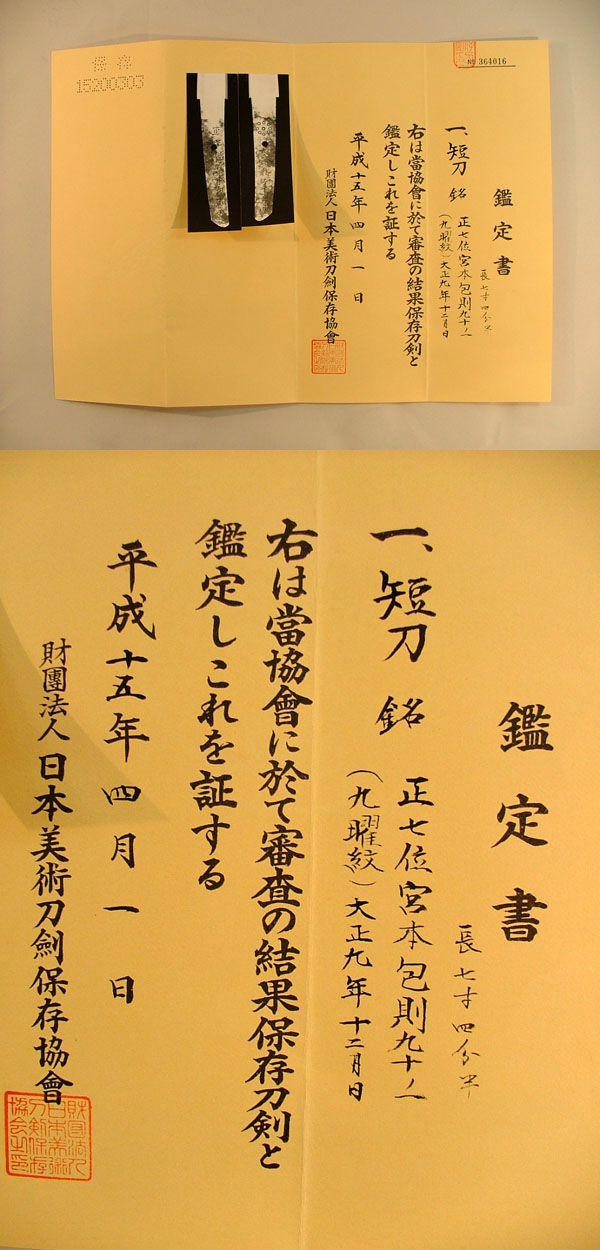 № 364016
鑑定書
長七寸四分半
一、短刀 銘 正七位宮本包則九十ノ一
（九曜紋）大正九年十二月日
右は當協會に於て審査の結果保存刀剣と
鑑定しこれを証する
平成十五年四月一日
財團法人日本美術刀劍保存協會
保存
15200303
鑑定書
長七寸四分半
一、短刀 銘 正七位宮本包則九十ノ一
（九曜紋）大正九年十二月日
右は當協會に於て審査の結果保存刀剣と
鑑定しこれを証する
平成十五年四月一日
財團法人日本美術刀劍保存協會
財団法人
日本美術
刀剣保存
協会之印